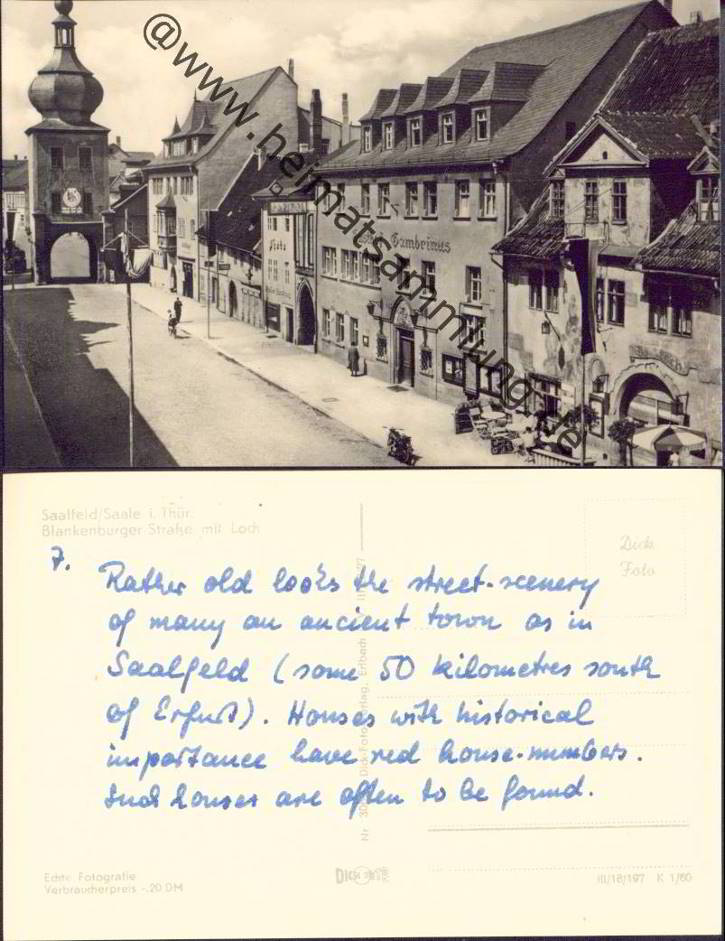 @www.heimatsammlung.de
Gambrinus
Saalfeld/Saale i. Thür.
Blankenburger Straße mit Loch
Dick
Foto
7.
Rather old looks the street-scenery
of many an ancient town as in
Saalfeld (some 50 kilometres south
of Erfurt). Houses with historical
importance have red house-numbers.
Such houses are often to be found.
Echte Fotografie
Verbraucherpreis -.20 DM
III/18/197 K 1/60